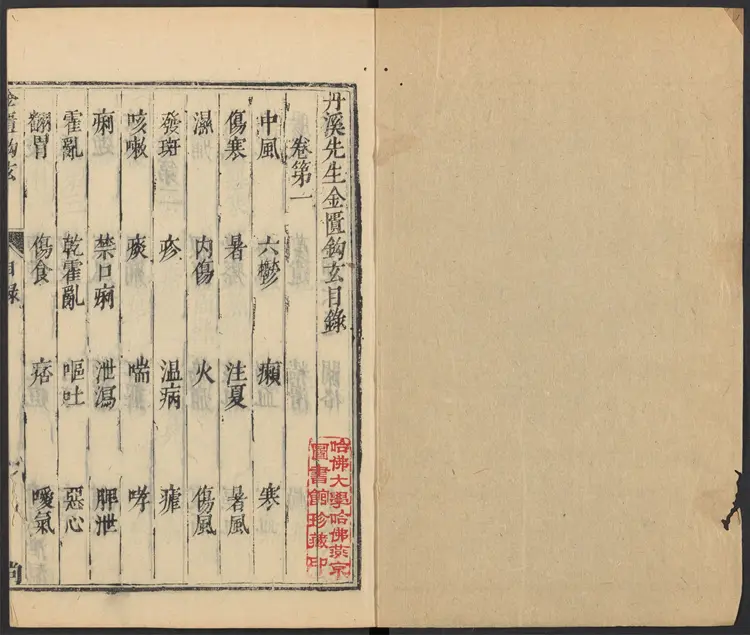 丹溪先生金匱鈎玄目錄
卷第一
中風 六鬱 癩 寒
傷寒 暑 注夏 暑風
濕 內傷 火 傷風
發斑 疹 温病 瘧
咳嗽 痰 喘 哮
痢 禁口痢 泄瀉 脾泄
霍亂 乾霍亂 嘔吐 惡心
翻胃 傷食 痞 噯氣
金匱鈎玄 目錄
哈佛大學哈佛燕京
圖書館珍藏印